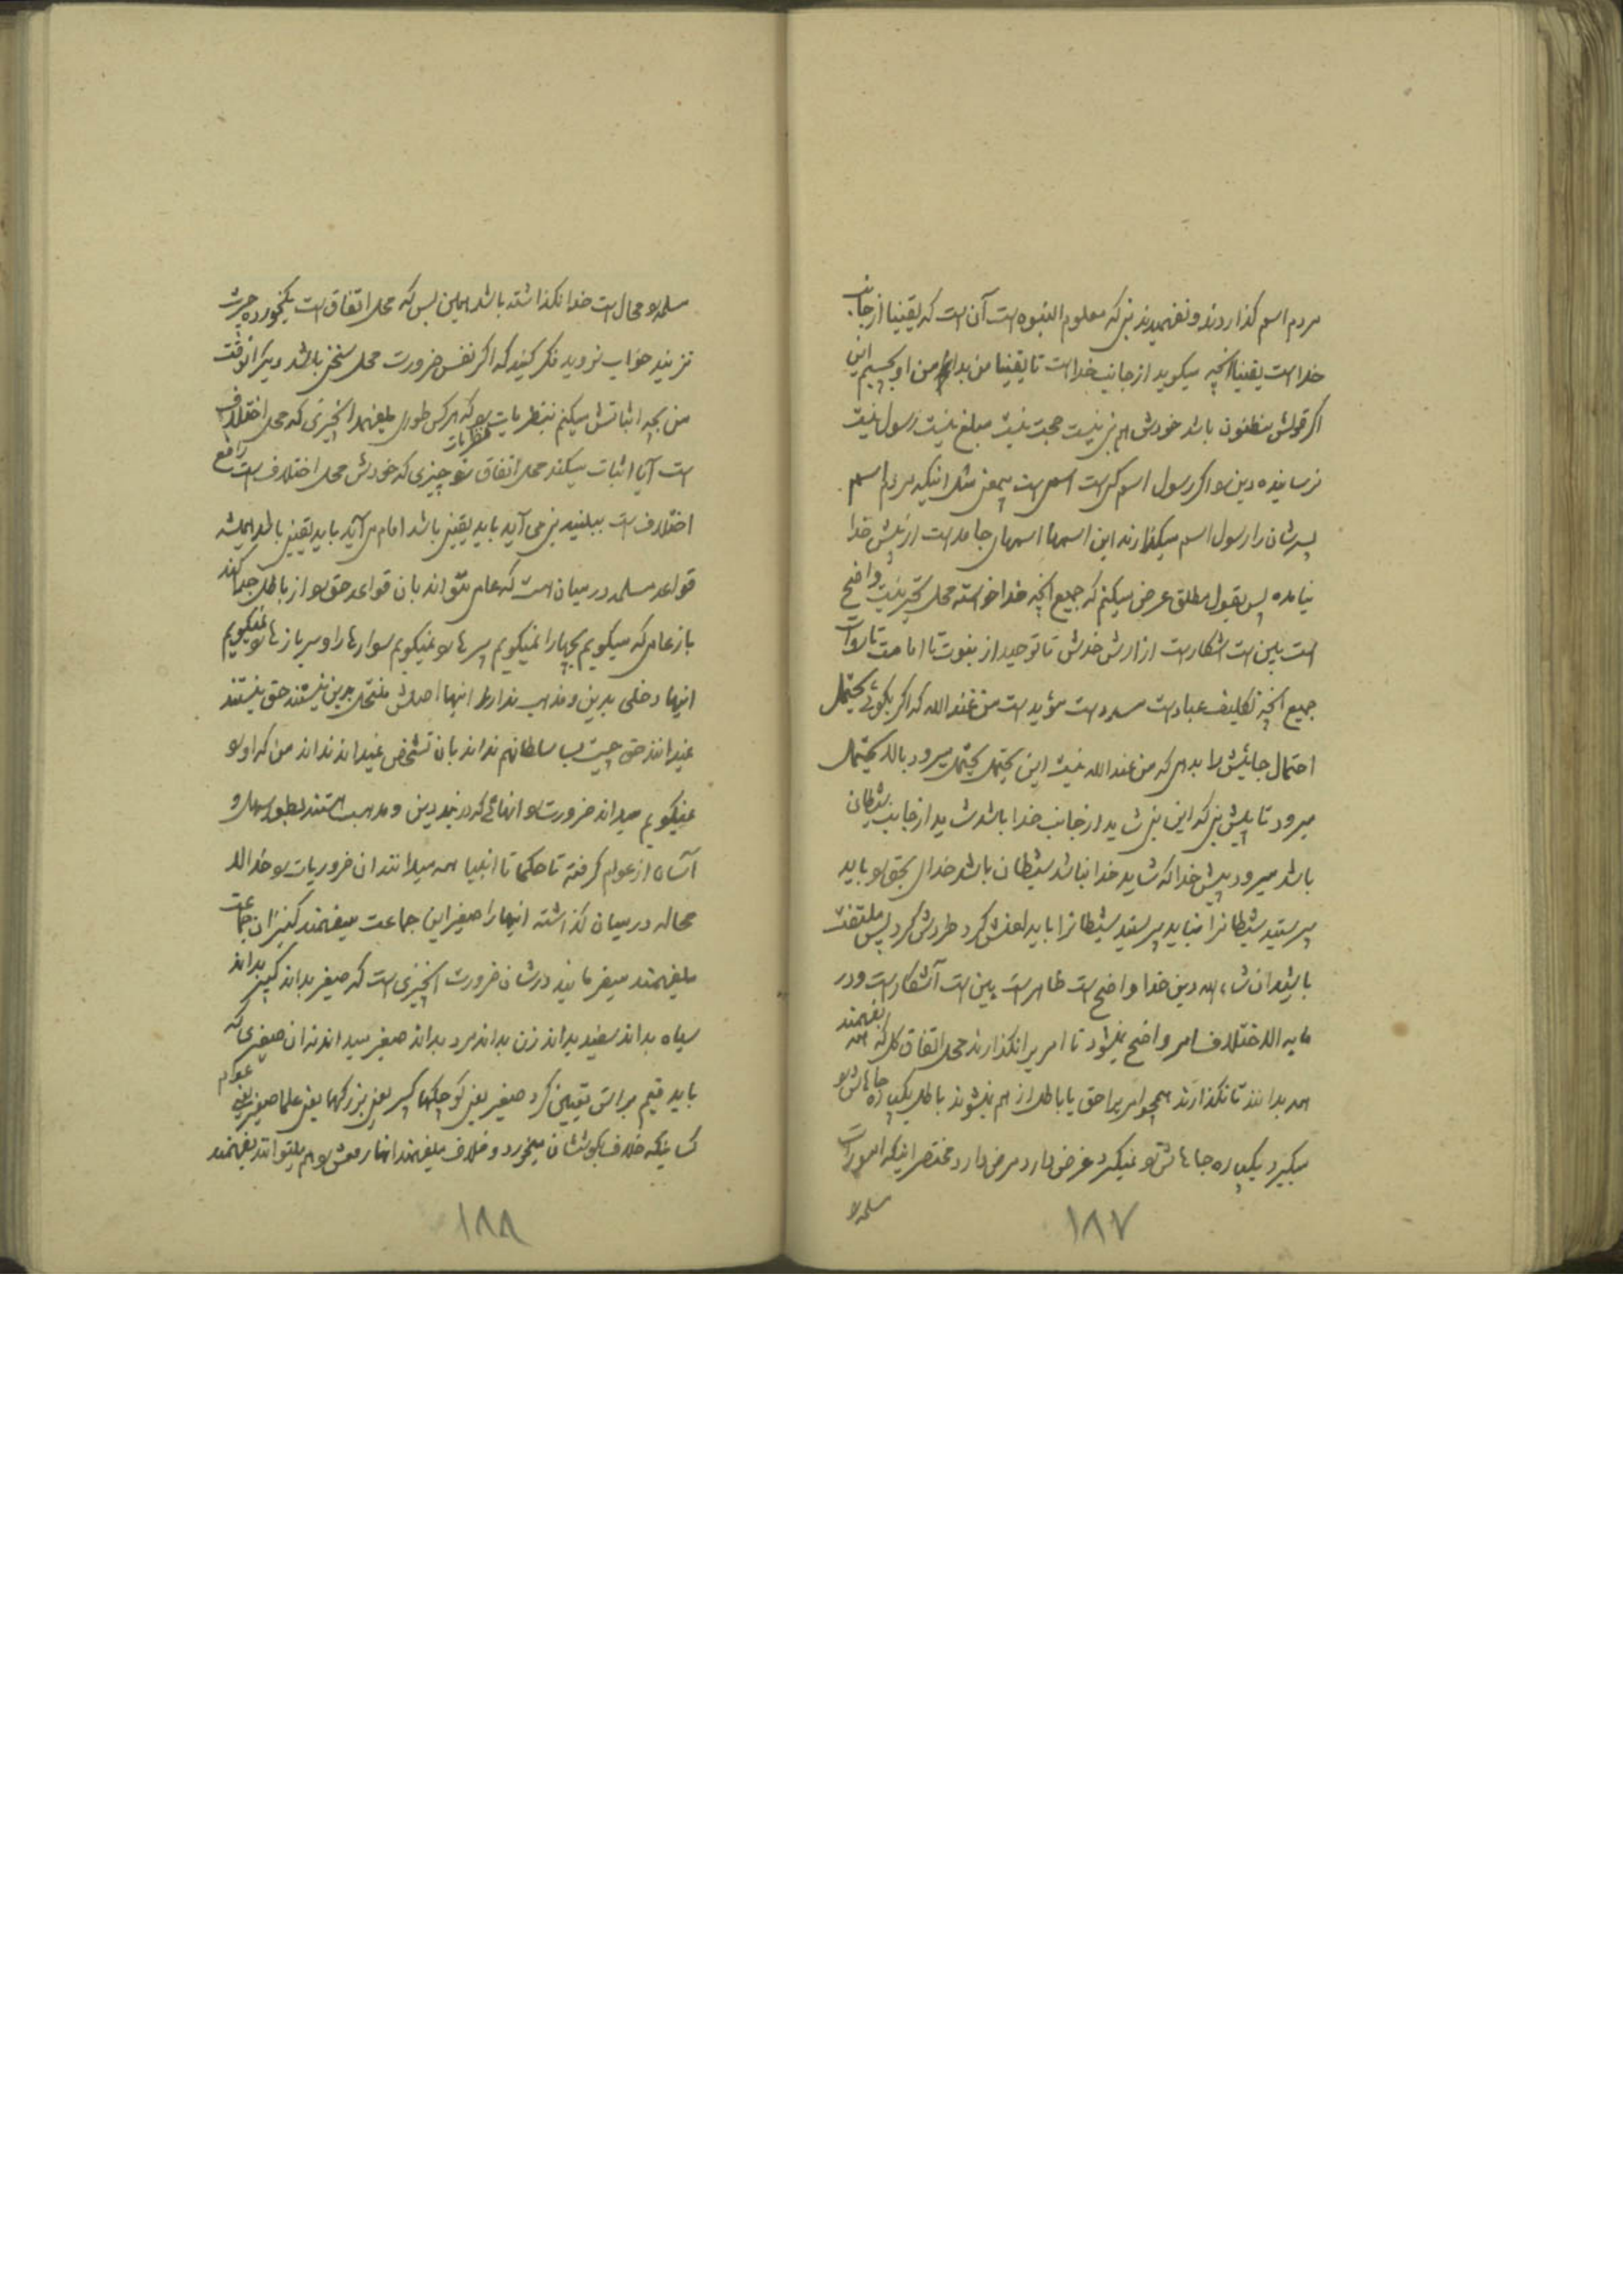 مردم اسم گذاردند و نفهمیدند نبی که معلوم النبوه است آن است که یقینا از جانب
خداست یقینا آنچه میگوید از جانب خداست تا یقینا من بدانم من او بچسبم این
اگر قولش مظنون باشد خودش هم نبی نیست حجت نیست مبلغ نیست رسول نیست
نرسانیده دین را اگر رسول اسم کسی است اسمی است بیمعنی مثل اینکه مردم اسم
پسرشان را رسول اسم میگذارند این اسمها اسمهای جامد است از پیش خدا
نیامده پس بقول مطلق عرض میکنم که جمیع آنچه خدا خواسته محل تحیر نیست واضح
است بین است اشکار است از ارش خدش تا توحید از نبوت تا امامت تا
جمیع آنچه تکلیف عباد است مسدد است مؤید است من عند الله که اگر بگوئی یحتمل
احتمال جائیش را بدهی که من عند الله نیست این یحتمل یحتمل میرود بالا یحتمل
میرود تا پیش نبی که این نبی شاید از جانب خدا باشد شاید از جانب شیطان
باشد میرود پیش خدا که شاید خدا نباشد شیطان باشد خدای بحق را باید
پرستید شیطانرا نباید پرستید شیطانرا باید لعنش کرد طردش کرد پس ملتفت
باشید ان شاء الله دین خدا واضح است ظاهر است بین است آشکار است و در
ما به الاختلاف امر واضح نمیشود تا امریرا نگذارند محل اتفاق کل که همه بفهمند
همه بدانند تا نگذارند همچو امریرا حق یا باطل از هم نمیشوند باطل یکپاره جاهاش را
میگیرد یکپاره جاهاش را نمیگیرد غرض دارد مرض دارد مختصر اینکه امورات
مسلمه را
۱۸۷
مسلمه را محال است خدا نگذاشته باشد همین بس که محل اتفاق است یکخورده چرت
نزنید خواب نروید فکر کنید که اگر نفس ضرورت محل سخن باشد دیگر آنوقت
من بچه اثباتش میکنم بنظریات را که هرکس طوری میفهمد آنچیزی که محل اختلاف
است آیا اثبات میکند محل اتفاق نظریات را چیزی که خودش محل اختلاف است رافع
اختلاف است ببینید نبی می آید باید یقینی باشد امام می آید باید یقینی باشد همیشه
قواعد مسلمه در میان هست که عامی بتواند بان قواعد حق را از باطل جدا کند
باز عامی که میگویم بچها را نمیگویم پسرها را نمیگویم سوارها را و سربازها را نمیگویم
اینها دخلی بدین و مذهب ندارند اینها اصلش منتحل بدین نیستند حق نیستند
نمیدانند حق چیست بسا سلطانهم نداند بان تشخص نمیداند نداند من که او را
نمیگویم میداند ضرورت را آنهائی که در بند دین و مذهب هستند بطور سهل و
آسان از عوام گرفته تا حکما تا انبیا همه میدانند ان ضروریات را خدا لا
محاله در میان گذاشته اینها را صغیر این جماعت میفهمند کبیر ان جماعت
میفهمند میفرمایند در شان ضرورت آنچیزی است که صغیر بداند کبیر بداند
سیاه بداند سفید بداند زن بداند مرد بداند صغیر میداند نه ان صغیری که
باید قیم برایش تعیین کرد صغیر یعنی کوچکها کبیر یعنی بزرگها یعنی علما صغیر یعنی عوام
کسانیکه خلاف بگوششان میخورد و خلاف میفهمند انها رفعش را هم میتوانند بفهمند
۱۸۸